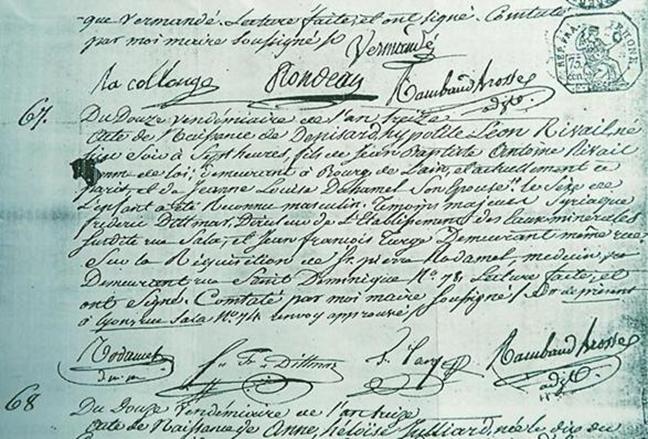 que Vermandé. Lecture faite, et ont signé. Constaté
par moi maire soussigné
Vermandé
la collonge Rondeau Rambaud Brosse
adj.t
REP. FRA RHONE
75
67. Du Douze Vendémiaire de l'an treize
Acte de Naissance de Denisard, hypolite Léon Rivail, né
hier soir à Sept heures, fils de Jean Baptiste Antoine Rivail
homme de loi, demeurant à Bourg de l'ain, et actuellement à
Paris, et de Jeanne Louise Duhamel Son épouse; le Sexe de
L'enfant a été Reconnu masculin. Temoins majeurs, Syriaque
frédéric Dittmar, Directeur de L'Etablissement des Eaux minerales
Susdite rue Sala, et Jean François Targe Demeurant même rue.
Sur la Réquisition de pierre Radamel, medecin,
Demeurant rue Saint Dominique N.º 78. Lecture faite, et
ont Signé. Constaté par moi maire soussigné / Dr. de présent
à Lyon, rue Sala N.º 74 renvoy approuvé /
Radamel Dittmar Rambaud Brosse
d. m. adj.t
68 Du Douze Vendémiaire de l'an treize
Acte de Naissance de Anne, héloïse Julliard, née le dix du